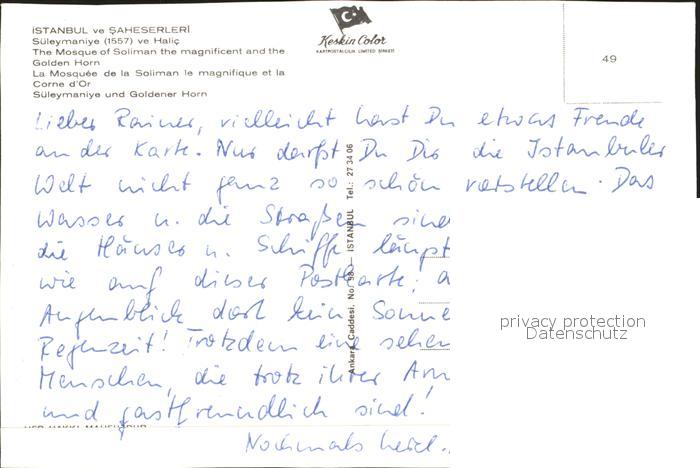 İSTANBUL ve ŞAHESERLERİ
Süleymaniye (1557) ve Haliç
The Mosque of Soliman the magnificent and the
Golden Horn
La Mosquée de la Soliman le magnifique et la
Corne d'Or
Süleymaniye und Goldener Horn
Keskin Color
KARTPOSTALCILIK LIMITED ŞİRKETİ
49
Lieber Rainer, vielleicht hast Du etwas Freude
an der Karte. Nur darfst Du Dir die Istanbuler
Welt nicht ganz so schön vorstellen. Das
Wasser u. die Straßen sind
die Häuser u. Schiffe längst
wie auf dieser Postkarte;
Augenblick dort kein Sonne
Regenzeit! Trotzdem eine sehen
Menschen, die trotz ihrer Arm
und gastfreundlich sind!
Nochmals herzl.
Ankara Caddesi, No. 98 — İSTANBUL Tel.: 27 34 06
privacy protection
Datenschutz